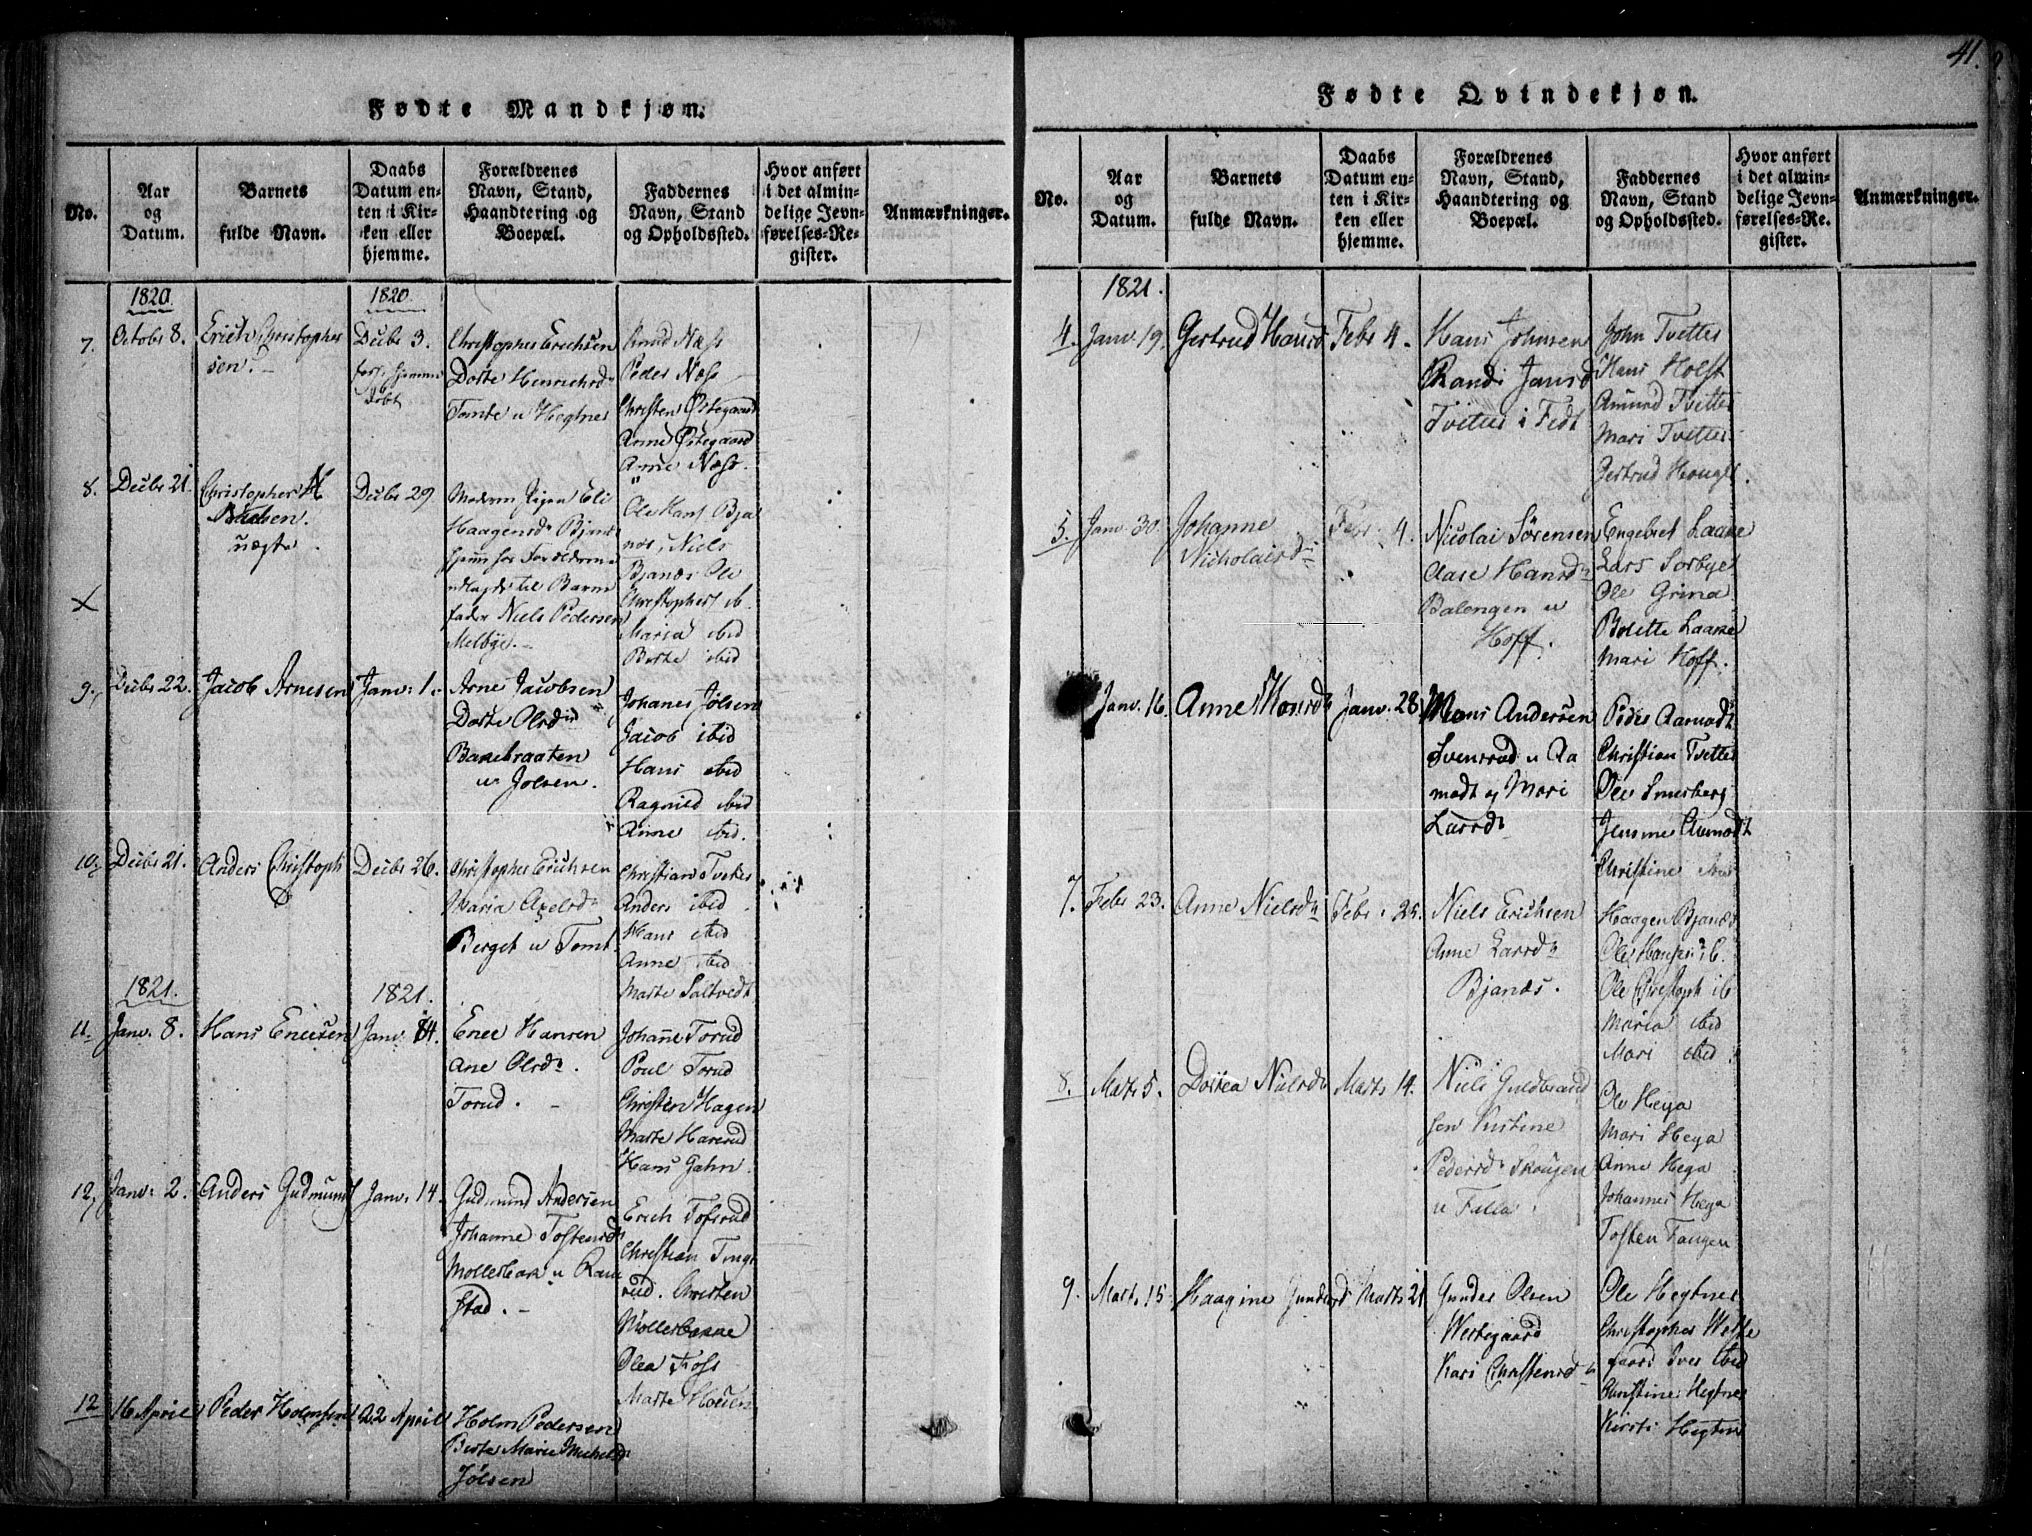 41.
Fødte Mandkjøn.
No.
Aar
og
Datum.
Barnets
fulde Navn.
Daabs
Datum en-
ten i Kir-
ken eller
hjemme.
Forældrenes
Navn, Stand,
Haandtering og
Boepæl.
Faddernes
Navn, Stand
og Opholdssted.
Hvor anført
i det almin-
delige Jevn-
førelses-Re-
gister.
Anmærkninger.
1820
1820
7.
Octobr 8.
Erich Christopher
sen.
Decbr 3.
hjemme
døbt
Christopher Erichsen
Dorte Henrichsd
Tomte u Hegtner
Knud Næss
Peder Næss
Christen Østegaard
Anne Østegaard
Anne Næss.
8.
Decbr 21.
Christopher
uægte
Decbr 29
Moderen Pigen Eli
Haagensd Bjønes
Forældrene
udlagde til Barne
fader Niels Pedersen
Melbye.
Ole Hans Bja
nes, Niels
Bjanæs Ole
Christophers ib.
Maria ibid
Berte ibid
9.
Decbr 22.
Jacob Arnesen
Janv: 1.
Arne Jacobsen
Dorte Olsd
Bakebraaten
u Jølsen.
Johanes Jølsen
Jacob ibid
Hans ibid
Ragnild ibid
Anne ibid.
10.
Decbr 21.
Anders Christoph
Decbr 26.
Christopher Erichsen
Maria Axelsd
Berget u Tomt.
Christian Tveter
Anders ibid
Hans ibid
Anne ibid
Marte Saltvedt
1821.
1821.
11.
Janv. 8.
Hans Enersen
Janv. 14.
Ener Hansen
Ane Olsd.
Torud.
Johanne Torud
Poul Torud
Christen Hagen
Marte Harerud
Hans Gahn.
12
Janv: 2.
Anders Gudmund
Janv: 14.
Gudmund Andersen
Johanne Tostensd
Møllerbak u Ram
stad.
Erich Tofsrud
Christian Tings
rud. Christen
Møllerbakke
Olea Foss
Marte Moeen
12
16 April
Peder Holmsen
22 April
Holm Pedersen
Berte Marie Michelsd
Jølsen
Fødte Qvindekjøn.
No.
Aar
og
Datum.
Barnets
fulde Navn.
Daabs
Datum en-
ten i Kir-
ken eller
hjemme.
Forældrenes
Navn, Stand,
Haandtering og
Boepæl.
Faddernes
Navn, Stand
og Opholdssted.
Hvor anført
i det almin-
delige Jevn-
førelses-Re-
gister.
Anmærkninger.
1821.
4.
Janv. 19.
Gertrud Hansd
Febr 4.
Hans Johnsen
Randi Jansd
Tvetter i Fedt
John Tvetter
Hans Holst
Amund Tvetter
Mari Tvetter
Gertrud Hougl.
5.
Janv. 30.
Johanne
Nicholaisd
Febr. 4.
Nicolai Sørensen
Aase Hansd
Balengen u
Hoff.
Engebret Laake
Lars Sorbye
Ole Grina
Bolette Laake
Mari Hoff.
Janv. 16.
Anne Monsd
Janv. 28.
Mons Andersen
Svensrud u Aa
modt og Mari
Larsd
Peder Aamodt
Christian Tvetter
Ole Smerberg
Jensine Aamodt
Christine
7.
Febr 23.
Anne Nielsd
Febr. 25.
Niels Erichsen
Anne Larsd
Bjanæs.
Haagen Bjanæs
Ole Hansen ib.
Ole Christoph ib
Maria ibid
Mari ibid
8.
Mart. 5.
Dortea Nielsd
Marts 14.
Niels Guldbrand
sen Kirstine
Pedersd Skougen
u Falla.
Ole Heya
Mari Heya
Anne Heya
Johannes Heya
Tosten Fangen
9.
Mart. 15.
Haagine Gundersd
Marts 21
Gunder Olsen
Westegaard
Kari Christensd
Ole Hegtner
Christopher Weste
gaard Iver ibid
Christine Hegtner
Kirsti Hegtner